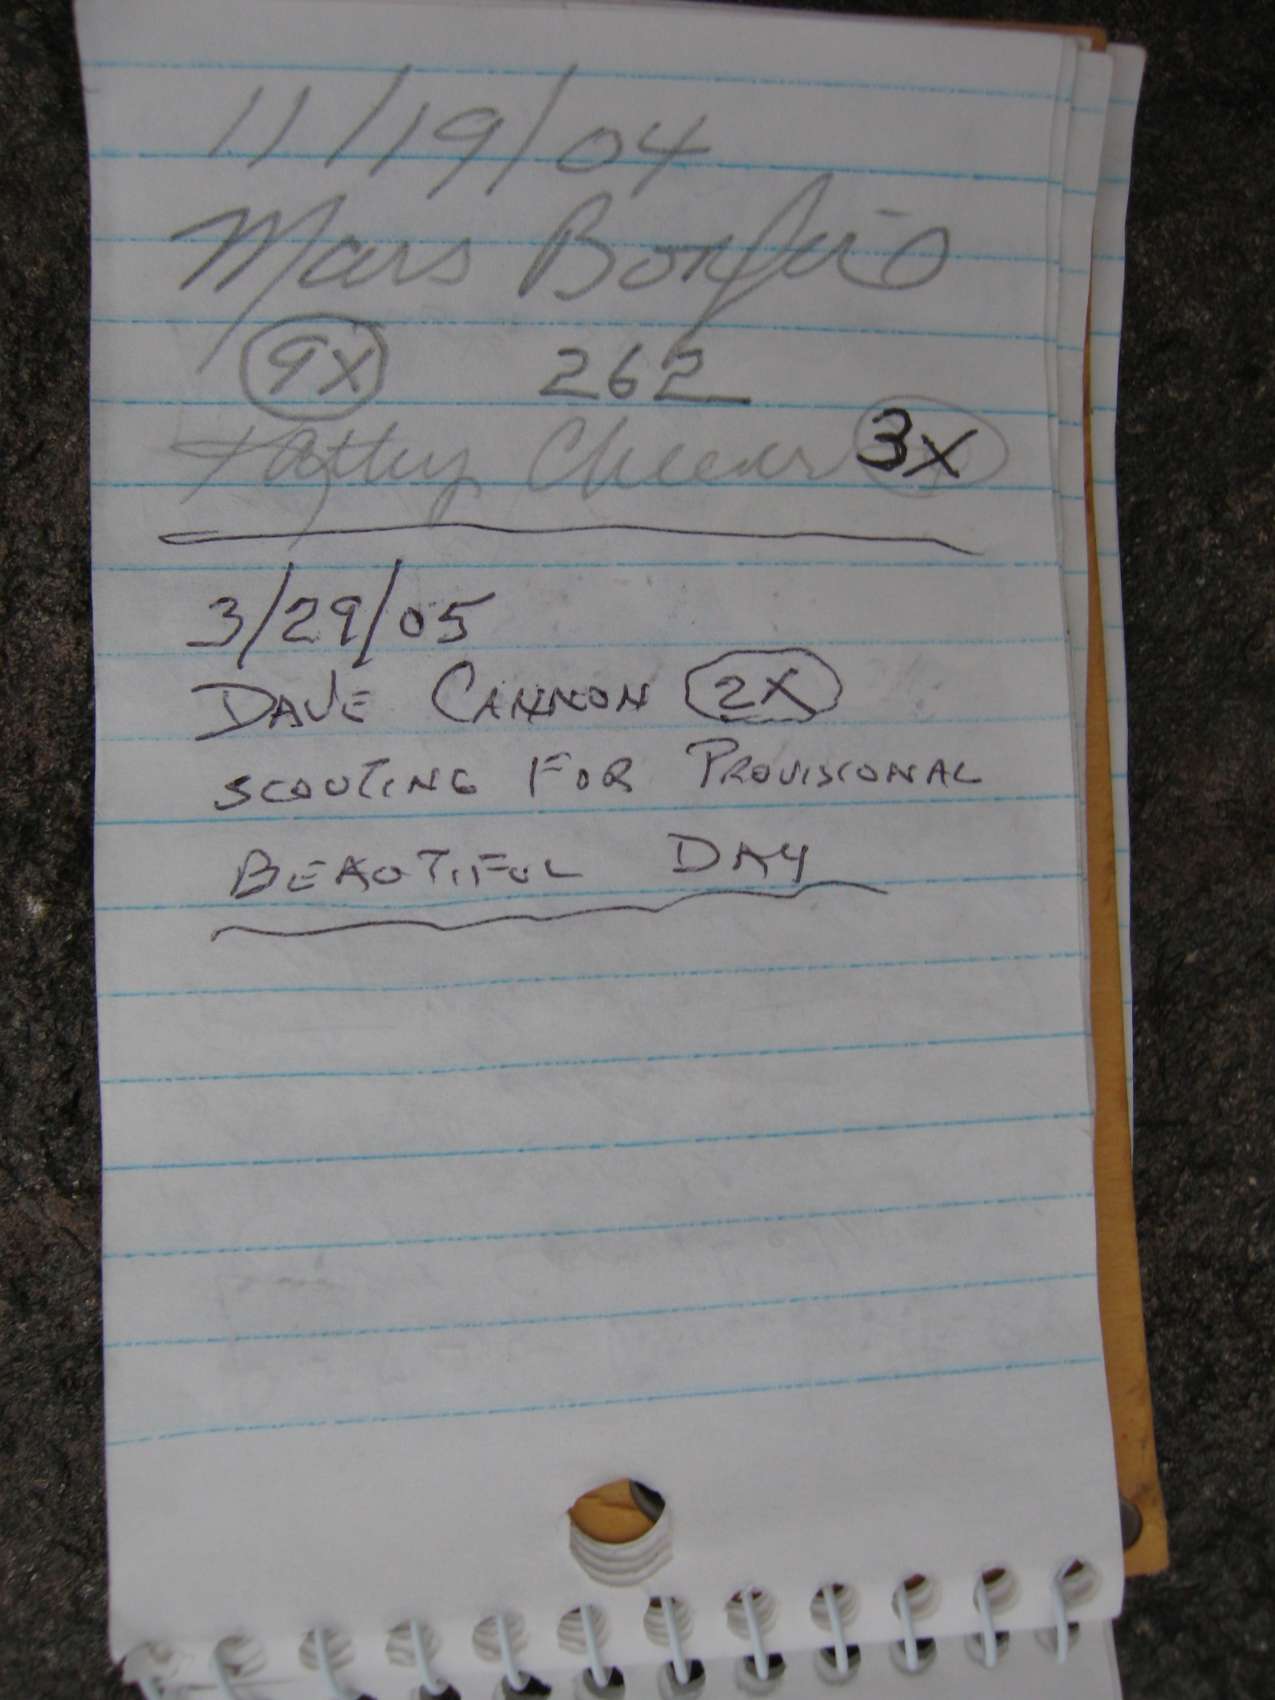 11/19/04
Mars Bonfire
9X 262
Kathy Cheever 3X
3/29/05
DAVE CANNON 2X
SCOUTING FOR PROVISIONAL
BEAUTIFUL DAY